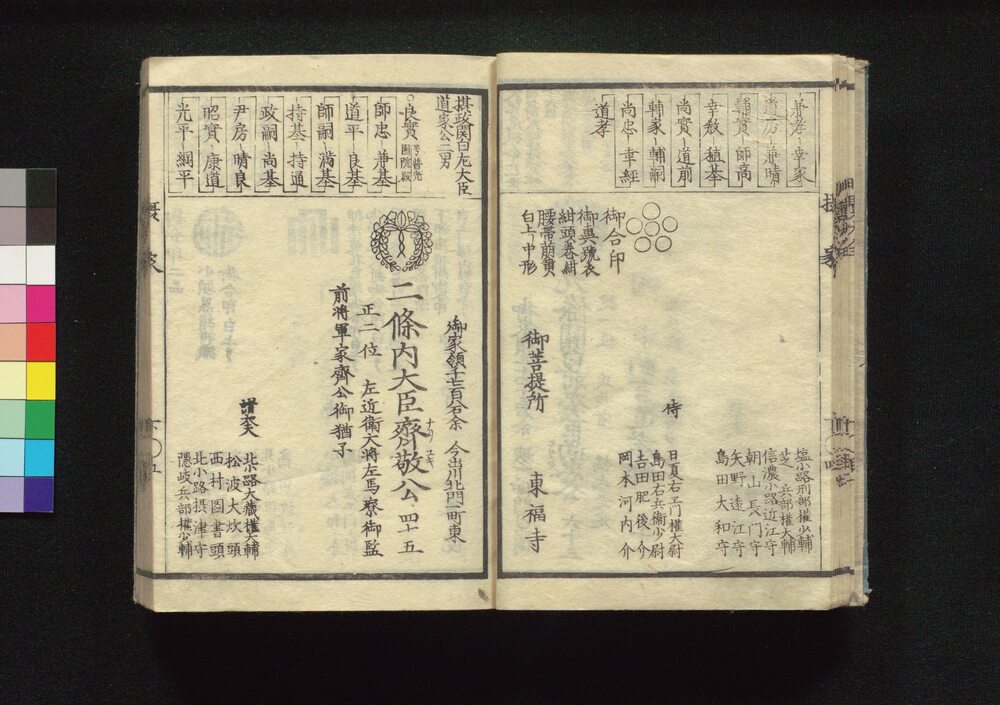 兼孝 幸家
道房 兼晴
輔實 師高
幸教 稙基
尚實 道前
輔家 輔嗣
尚忠 幸經
道孝
御合印
御輿舁衣
紺頭巻紺
腰帯萠黄
白上り中形
御菩提所
東福寺
塩小路刑部權少輔
芝 兵部權大輔
信濃小路近江守
朝山長門守
矢野遠江守
島田大和守
侍
日夏右ヱ門權大尉
島田右兵衛少尉
吉田肥後介
岡本河内介
摂家
摂政関白左大臣
道家公二男
良實
師忠 兼基
道平 良基
師嗣 満基
持基 持通
政嗣 尚基
尹房 晴良
昭實 康道
光平 綱平
御家領千七百石余 今出川北門一町東
二條内大臣齊敬公 四十五
正二位 左近衛大将左馬寮御監
前将軍家齊公御猶子
諸大夫
北小路大蔵權大輔
松波大炊頭
西村圖書頭
北小路摂津守
隠岐兵部權少輔